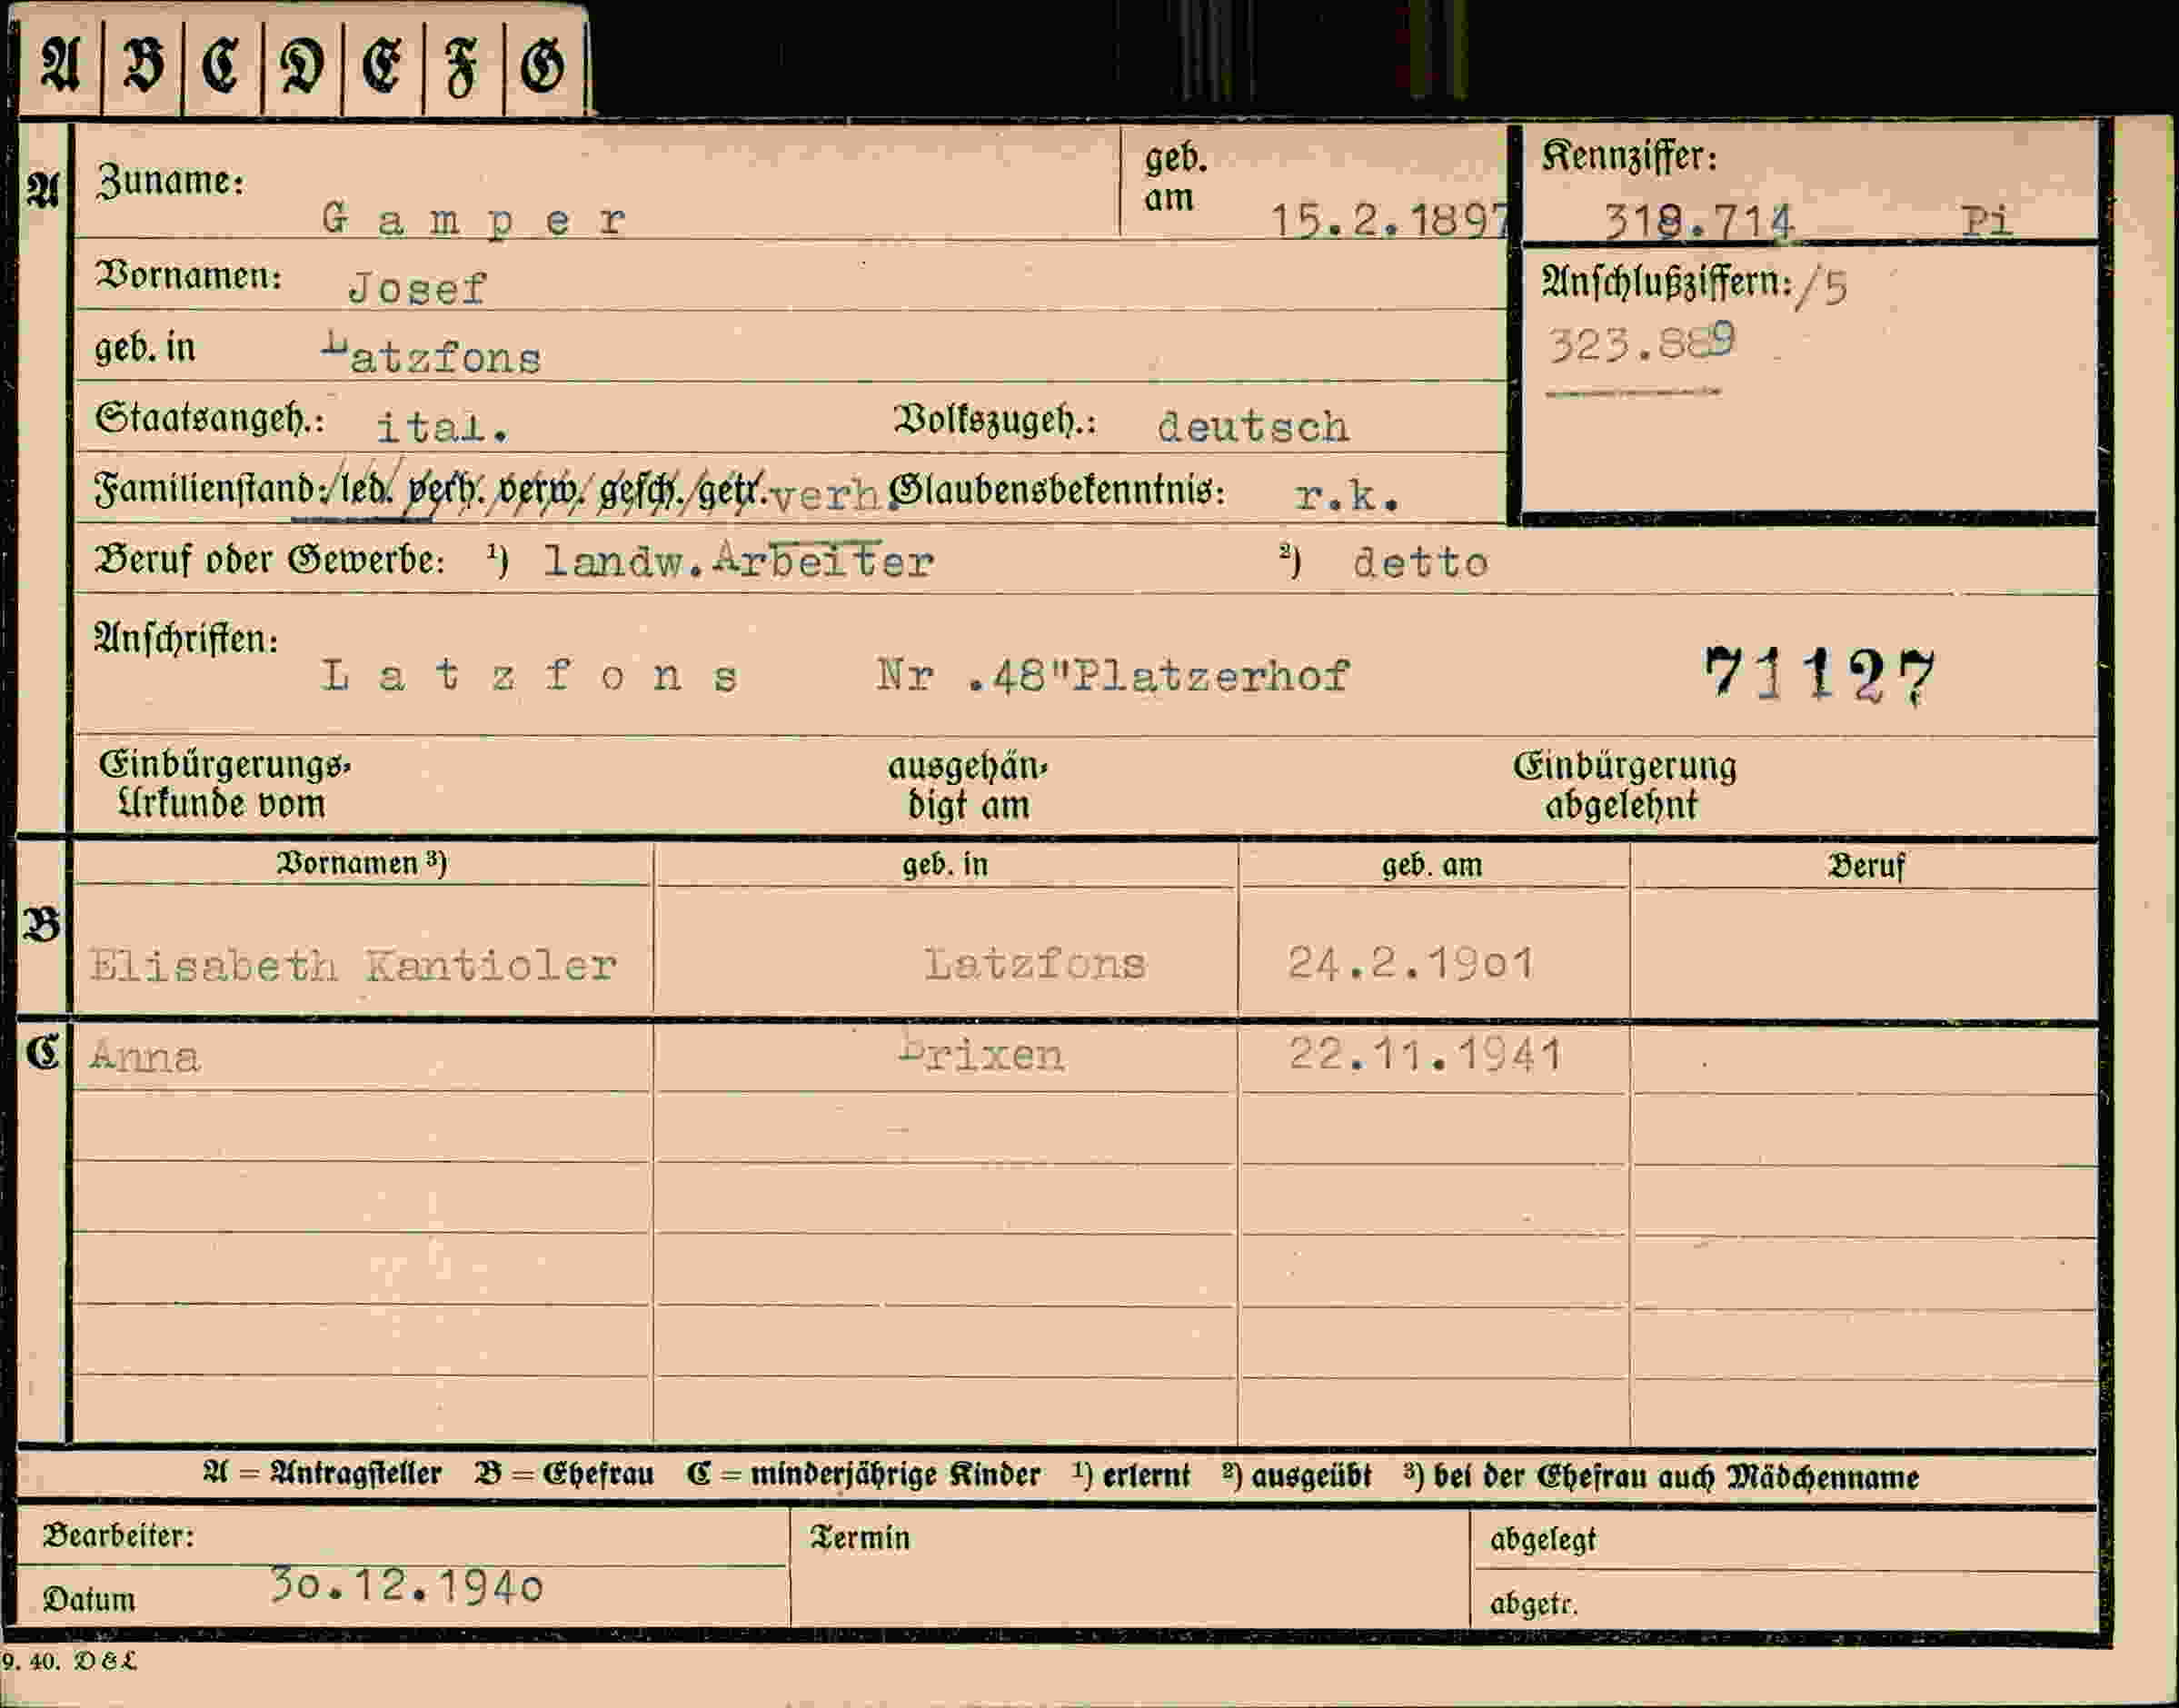 A B C D E F G
A Zuname: Gamper geb. am 15.2.1897 Kennziffer: 318.714 Pi
Vornamen: Josef Anschlußziffern: /5
geb. in Latzfons 323.889
Staatsangeh.: ital. Volkszugeh.: deutsch
Familienstand: led. verh. verw. gesch. getr. verh. Glaubensbekenntnis: r.k.
Beruf oder Gewerbe: ¹) landw.Arbeiter ²) detto
Anschriften: Latzfons Nr .48"Platzerhof 71127
Einbürgerungs-Urkunde vom ausgehändigt am Einbürgerung abgelehnt
B Vornamen ³) geb. in geb. am Beruf
Elisabeth Kantioler Latzfons 24.2.19o1
C Anna Brixen 22.11.1941
A = Antragsteller B = Ehefrau C = minderjährige Kinder ¹) erlernt ²) ausgeübt ³) bei der Ehefrau auch Mädchenname
Bearbeiter: Termin abgelegt
Datum 3o.12.194o abgetr.
9. 40. D & L